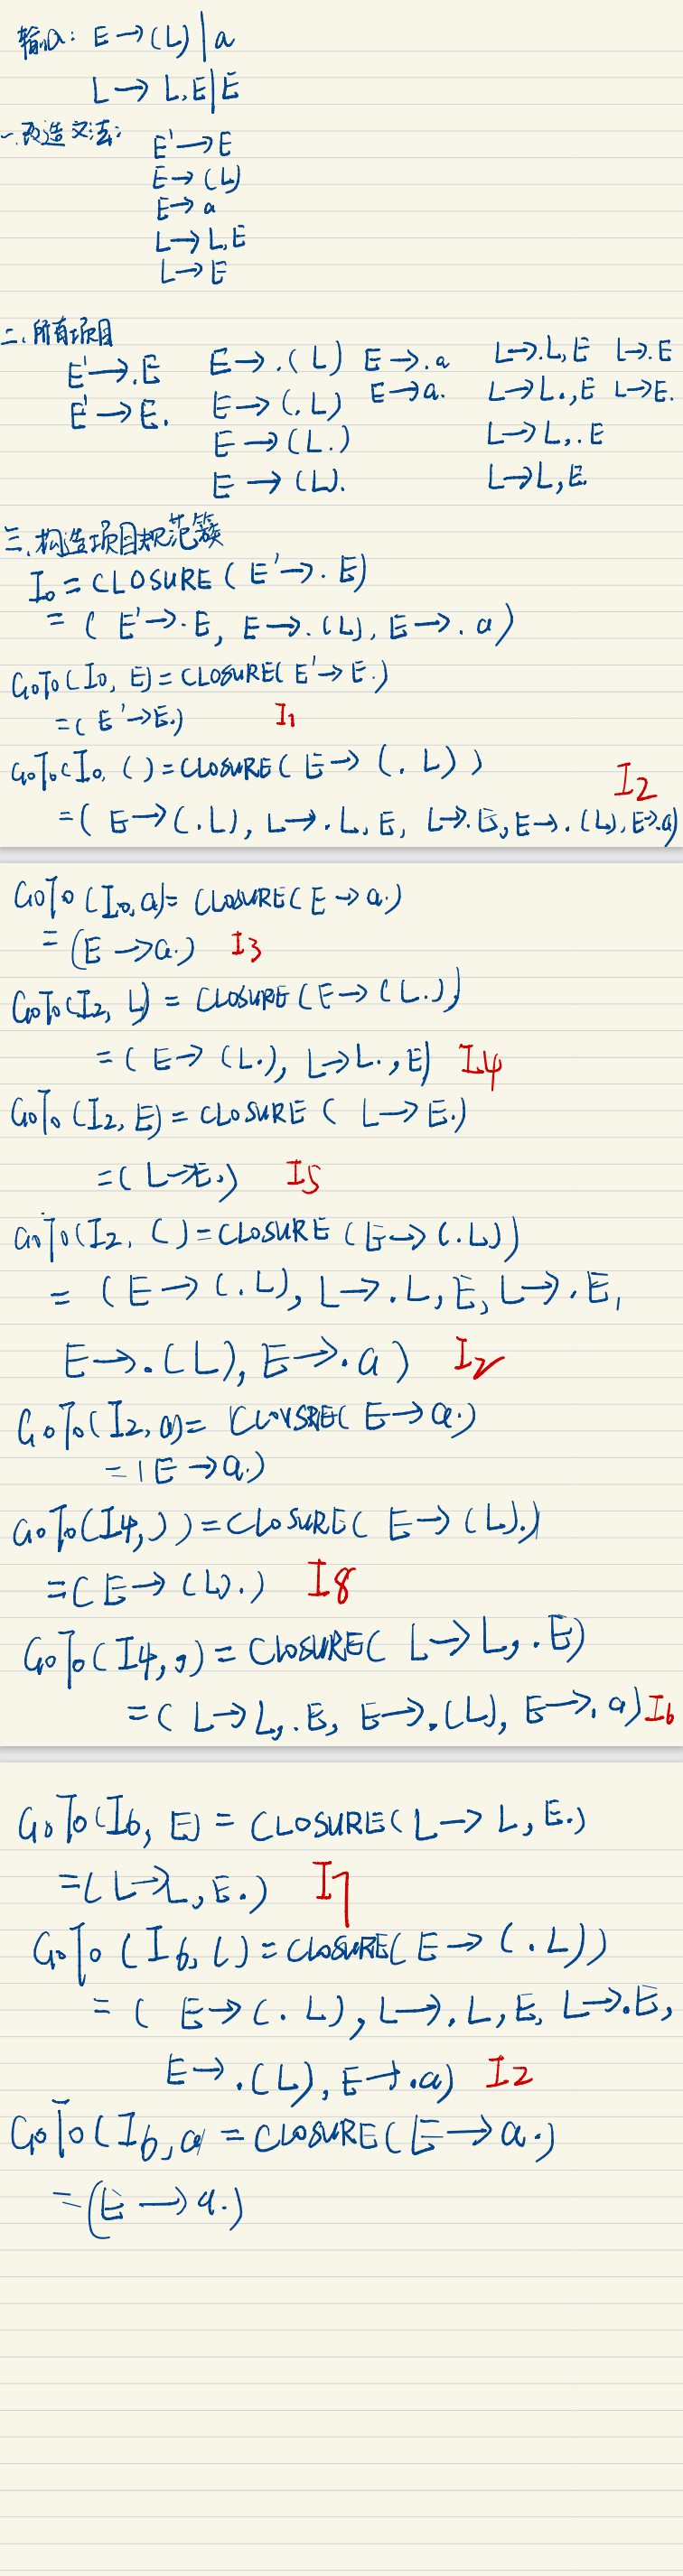 输入: E→(L)|a
L→L,E|E
一.改造文法:
E'→E
E→(L)
E→a
L→L,E
L→E
二.所有项目
E'→.E E→.(L) E→.a L→.L,E L→.E
E'→E. E→(.L) E→a. L→L.,E L→E.
E→(L.) L→L,.E
E→(L). L→L,E.
三.构造项目规范簇
I0=CLOSURE(E'→.E)
=(E'→.E, E→.(L), E→.a)
GoTo(I0, E)=CLOSURE(E'→E.)
=(E'→E.) I1
GoTo(I0, ()=CLOSURE(E→(.L))
=(E→(.L), L→.L,E, L→.E, E→.(L), E→.a) I2
GoTo(I0,a)=CLOSURE(E→a.)
=(E→a.) I3
GoTo(I2, L)=CLOSURE(E→(L.))
=(E→(L.), L→L.,E) I4
GoTo(I2, E)=CLOSURE(L→E.)
=(L→E.) I5
GoTo(I2, ()=CLOSURE(E→(.L))
=(E→(.L), L→.L,E, L→.E,
E→.(L), E→.a) I2
GoTo(I2, a)=CLOUSRE(E→a.)
=(E→a.)
GoTo(I4,))=CLOSURE(E→(L).)
=(E→(L).) I8
GoTo(I4,,)=CLOSURE(L→L,.E)
=(L→L,.E, E→.(L), E→.a) I6
GoTo(I6, E)=CLOSURE(L→L,E.)
=(L→L,E.) I7
GoTo(I6,()=CLOSURE(E→(.L))
=(E→(.L), L→.L,E, L→.E,
E→.(L), E→.a) I2
GoTo(I6,a)=CLOSURE(E→a.)
=(E→a.)